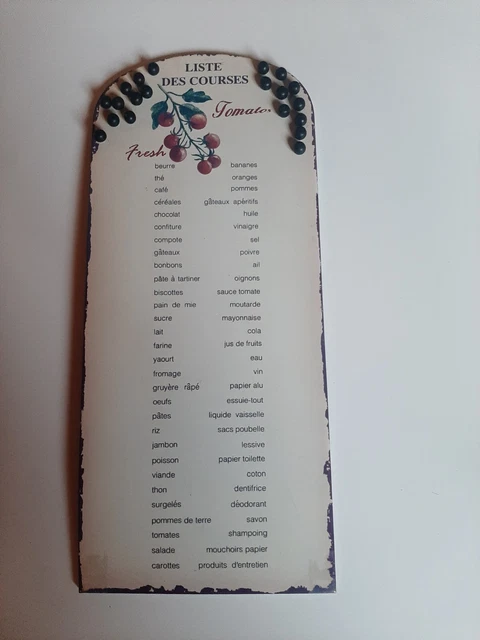 LISTE
DES COURSES
Tomatos
Fresh
beurre bananes
thé oranges
café pommes
céréales gâteaux apéritifs
chocolat huile
confiture vinaigre
compote sel
gâteaux poivre
bonbons ail
pâte à tartiner oignons
biscottes sauce tomate
pain de mie moutarde
sucre mayonnaise
lait cola
farine jus de fruits
yaourt eau
fromage vin
gruyère râpé papier alu
oeufs essuie-tout
pâtes liquide vaisselle
riz sacs poubelle
jambon lessive
poisson papier toilette
viande coton
thon dentifrice
surgelés déodorant
pommes de terre savon
tomates shampoing
salade mouchoirs papier
carottes produits d'entretien